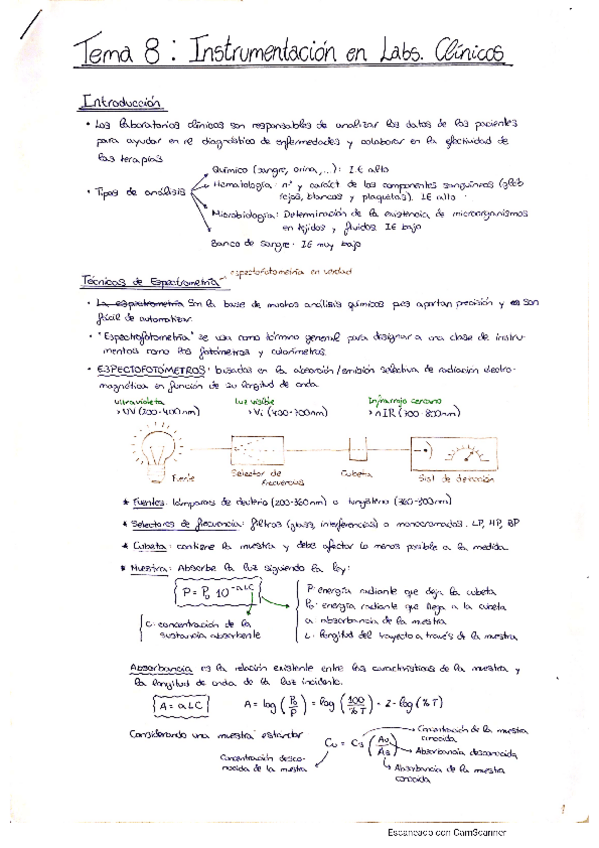 Tema 8: Instrumentación en Labs. Clínicos
Introducción
• Los laboratorios clínicos son responsables de analizar los datos de los pacientes
para ayudar en el diagnóstico de enfermedades y colaborar en la efectividad de
las terapias
• Tipos de análisis
Químico (sangre, orina,...): IE alto
Hematología: nº y caráct de los componentes sanguíneos (glób
rojos, blancos y plaquetas). IE alto
Microbiología: Determinación de la existencia de microorganismos
en tejidos y fluidos. IE bajo
Banco de sangre: IE muy bajo
Técnicas de Espectrometría espectofotometría en verdad
• La espectrometría Son la base de muchos análisis químicos pues aportan precisión y es son
fácil de automatizar.
• "Espectrofotometría" se usa como término general para designar a una clase de instru-
mentos como los fotómetros y colorímetros.
• ESPECTOFOTÓMETROS: basados en la absorción/emisión selectiva de radiación electro-
magnética en función de su longitud de onda.
ultravioleta luz visible Infrarrojo cercano
> UV (200-400nm) > Vi (400-700nm) > nIR (700-800nm)
Fuente Selector de frecuencias Cubeta Sist de detección
* Fuentes: lámparas de deuterio (200-360nm) o tungsteno (360-800nm)
* Selectores de frecuencia: filtros (glass, interferencias) o monocromados: LP, HP, BP
* Cubeta: contiene la muestra y debe afectar lo menos posible a la medida
* Muestra: Absorbe la luz siguiendo la ley:
P = P₀ 10^-aLC
P: energía radiante que deja la cubeta
P₀: energía radiante que llega a la cubeta
a: absorbancia de la muestra
L: longitud del trayecto a través de la muestra
C: concentración de la
sustancia absorbente
Absorbancia es la relación existente entre las características de la muestra y
la longitud de onda de la luz incidente.
A = aLC A = log (P₀/P) = log (100/%T) = 2 - log (%T)
Considerando una muestra estándar
Cu = Cs (Au/As)
Concentración de la muestra
conocida
Absorbancia desconocida
Absorbancia de la muestra
conocida
Concentración desco-
nocida de la muestra
1
Escaneado con CamScanner